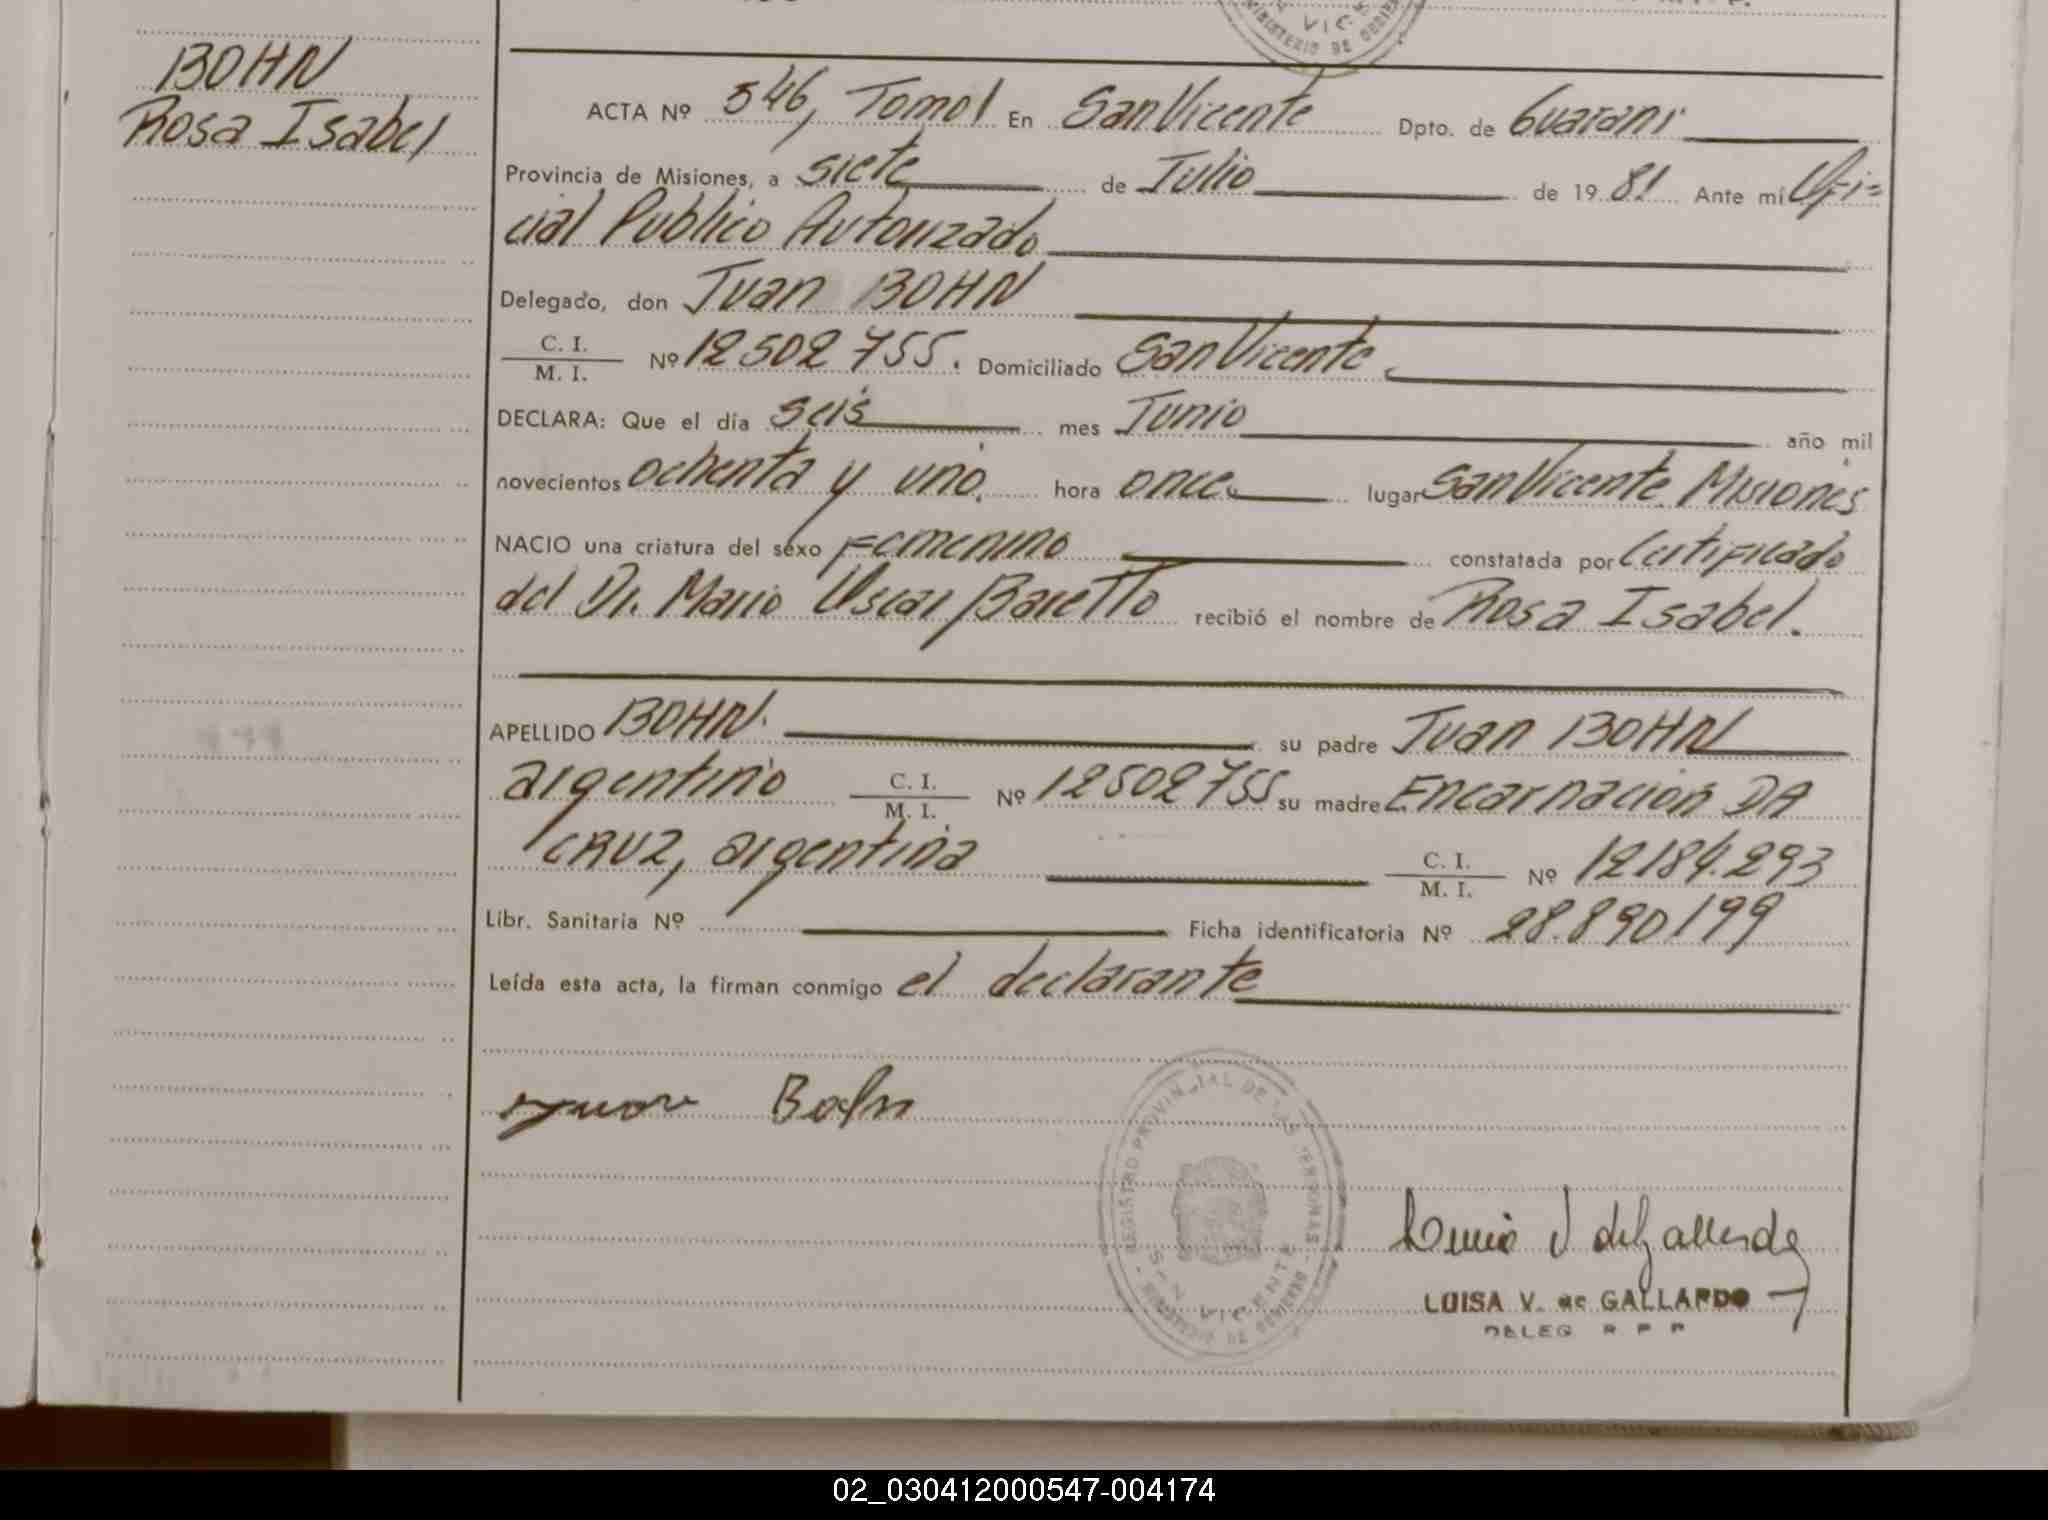 VICE
MINISTERIO DE GOBIERNO
BOHN
Rosa Isabel
ACTA Nº 546, Tomo I En San Vicente Dpto. de Guaraní
Provincia de Misiones, a siete de Julio de 1981 Ante mí Ofi=
cial Publico Autorizado
Delegado, don Juan BOHN
C. I.
M. I. Nº 12502755. Domiciliado San Vicente.
DECLARA: Que el día seis mes Junio año mil
novecientos ochenta y uno. hora once. lugar San Vicente Misiones
NACIO una criatura del sexo Femenino constatada por Certificado
del Dr. Mario Oscar Baretto recibió el nombre de Rosa Isabel.
APELLIDO BOHN. su padre Juan BOHN
argentino C. I.
M. I. Nº 12502755 su madre Encarnación DA
CRUZ, argentina C. I.
M. I. Nº 12184.293
Libr. Sanitaria Nº Ficha identificatoria Nº 28.890199
Leída esta acta, la firman conmigo el declarante
Bohn
REGISTRO PROVINCIAL DE LAS PERSONAS
SAN VICENTE
MINISTERIO DE GOBIERNO
LUISA V. de GALLARDO
DELEG R P P
02_030412000547-004174